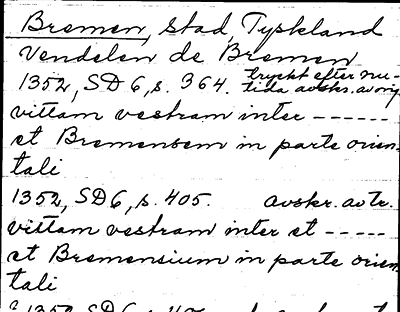 Bremen, stad, Tyskland
Vendelen de Bremen
1352, SD 6, s. 364. tryckt efter nu-
tida avskr. av orig
vittam vestram inter ------
et Bremensem in parte orien-
tali
1352, SD 6, s. 405. avskr. av tr.
vittam vestram inter et -----
et Bremensium in parte orien-
tali
1352, SD 6, s.